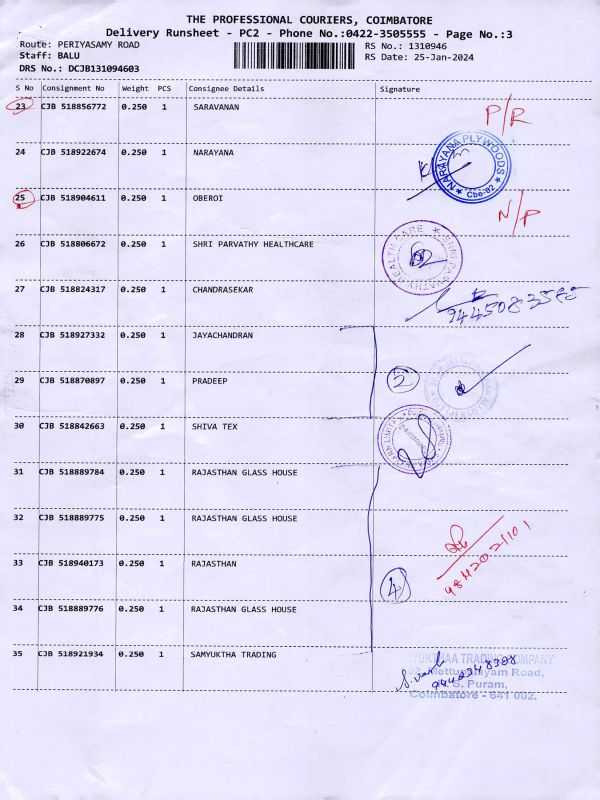 THE PROFESSIONAL COURIERS, COIMBATORE
Delivery Runsheet - PC2 - Phone No.:0422-3505555 - Page No.:3
Route: PERIYASAMY ROAD
RS No.: 1310946
Staff: BALU
RS Date: 25-Jan-2024
DRS No.: DCJB131094603
S No Consignment No Weight PCS Consignee Details Signature
23 CJB 518856772 0.250 1 SARAVANAN P/R
24 CJB 518922674 0.250 1 NARAYANA
NARAYANA PLYWOODS
Cbe-02
25 CJB 518904611 0.250 1 OBEROI N/P
26 CJB 518806672 0.250 1 SHRI PARVATHY HEALTHCARE
SHRI PARVATHY HEALTH CARE
27 CJB 518824317 0.250 1 CHANDRASEKAR
28 CJB 518927332 0.250 1 JAYACHANDRAN
29 CJB 518870897 0.250 1 PRADEEP 2
30 CJB 518842663 0.250 1 SHIVA TEX
31 CJB 518889784 0.250 1 RAJASTHAN GLASS HOUSE
32 CJB 518889775 0.250 1 RAJASTHAN GLASS HOUSE
33 CJB 518940173 0.250 1 RAJASTHAN 4
34 CJB 518889776 0.250 1 RAJASTHAN GLASS HOUSE
35 CJB 518921934 0.250 1 SAMYUKTHA TRADING
TRADING COMPANY
Road,
Puram,
Coimbatore - 641 002.